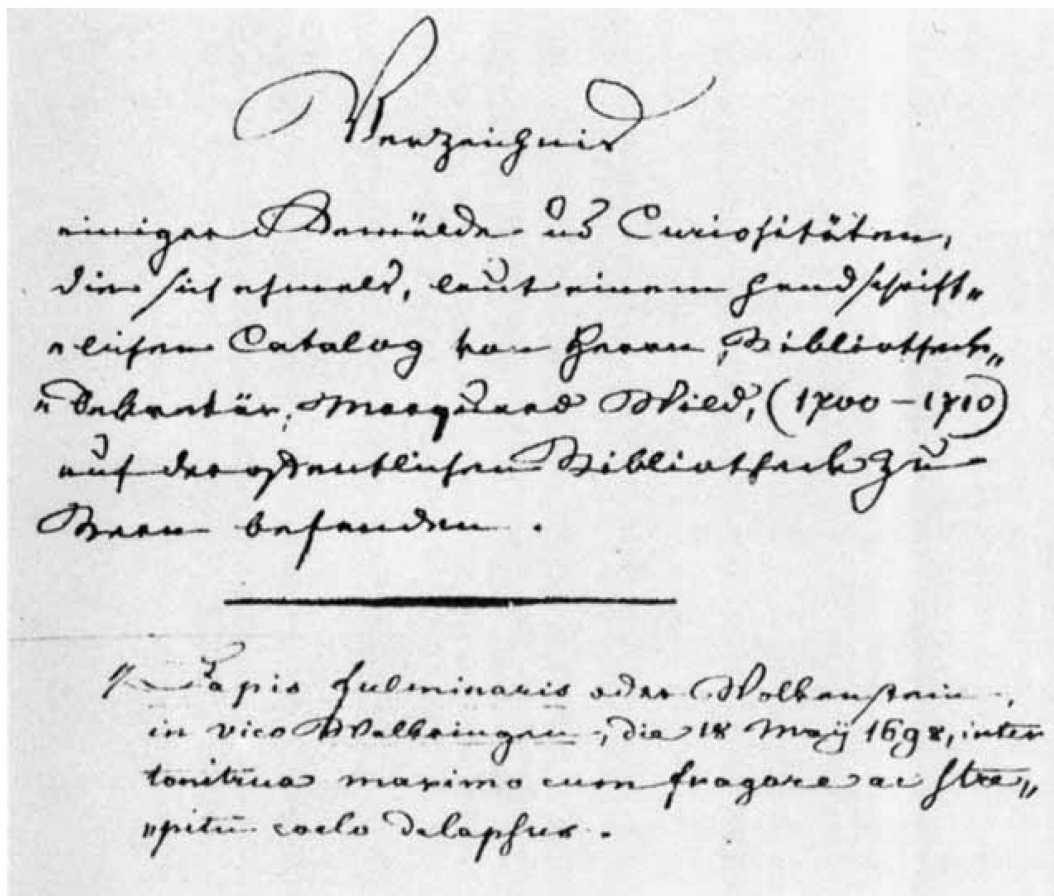 Verzeichnis
einiger Gemälde und Curiositäten,
die sich ehmals, laut einem handschrift„
„lichen Catalog von Herrn Bibliothek„
„Sekretär, Marquard Wild, (1700 – 1710)
auf der öffentlichen Bibliothek zu
Bern befanden.
Lapis fulminaris oder Wolkenstein,
in vico Walkringen, die 18 Maÿ 1698, inter
tonitrua maximo cum fragore ac stre„
„pitu coelo delapsus.